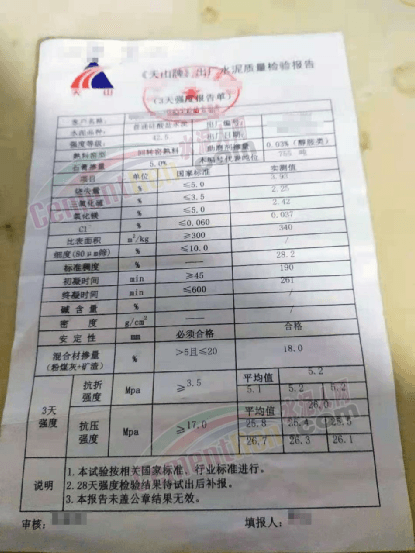 天 山
《天山牌》出厂水泥质量检验报告
(3天强度报告单)
客户名称:
水泥品种: 普通硅酸盐水泥 出厂编号:
强度等级: 42.5 出厂日期:
熟料窑型 回转窑熟料 助磨剂掺量 0.03% (醇胺类)
石膏掺量 5.0%
项目 单位 国家标准 实测值
烧失量 % ≤5.0 3.93
三氧化硫 % ≤3.5 2.25
氧化镁 % ≤5.0 2.42
Cl⁻ % ≤0.060 0.037
比表面积 m²/kg ≥300 340
细度(80μm筛) % ≤10.0 /
标准稠度 % —— 28.2
初凝时间 min ≥45 190
终凝时间 min ≤600 261
碱 含 量 % /
密 度 g/cm³ —— /
安 定 性 mm 必须合格 合格
混合材掺量 (粉煤灰+矿渣) % >5且≤20 18.0
3天强度
抗折强度 Mpa ≥3.5 平均值 5.2
5.1 5.2 5.2
抗压强度 Mpa ≥17.0 平均值 26.0
25.8 25.4 26.5
26.7 26.3 26.1
说明
1.本试验按相关国家标准、行业标准进行。
2.28天强度检验结果待试出后补报。
3.本报告未盖公章结果无效。
审核: 填报人: